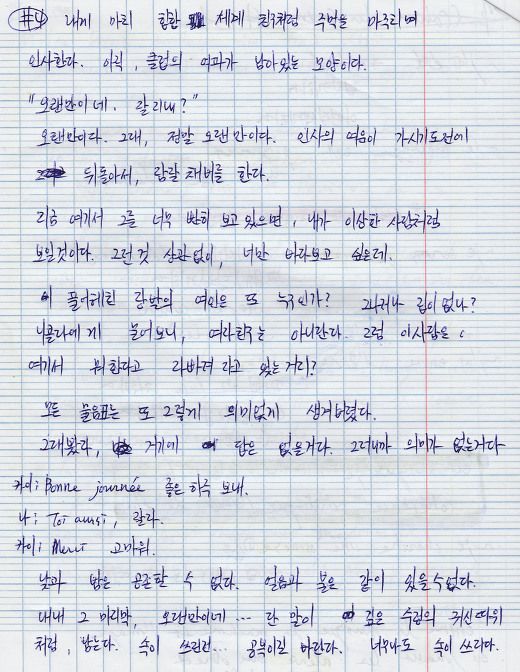 #4 내게 마치 힙합 세계 친구처럼 주먹을 마주치며
인사한다. 아직, 클럽의 여파가 남아있는 모양이다.
"오랜만이네. 잘 지내?"
오랜만이다. 그래, 정말 오랜만이다. 인사의 여음이 가시기도 전에
뒤돌아서, 잠깐 채비를 한다.
지금 여기서 그를 너무 빤히 보고 있으면, 내가 이상한 사람처럼
보일것이다. 그런 것 상관없이, 너만 바라보고 싶은데.
풀어헤친 금발의 여인은 또 누구인가?
니콜라에게 물어보니, 여자친구는 아니란다. 그럼 이사람은
여기서 뭐한다고 자빠져 자고 있는거지?
모든 물음표는 또 그렇게 의미없게 생겨버렸다.
그래봤자, 거기에 답은 없을거다. 그러니까 의미가 없는거다
카이: Bonne journée 좋은 하루 보내.
나: Toi aussi, 잘가.
카이: Merci 고마워.
낮과 밤은 공존할 수 없다. 얼음과 불은 같이 있을수없다.
내내 그 마지막, 오랜만이네... 란 말이 깊은 수렁의 귀신따위
처럼, 맴돈다. 속이 쓰린건... 공복이길 바란다. 너무나도 속이 쓰리다.